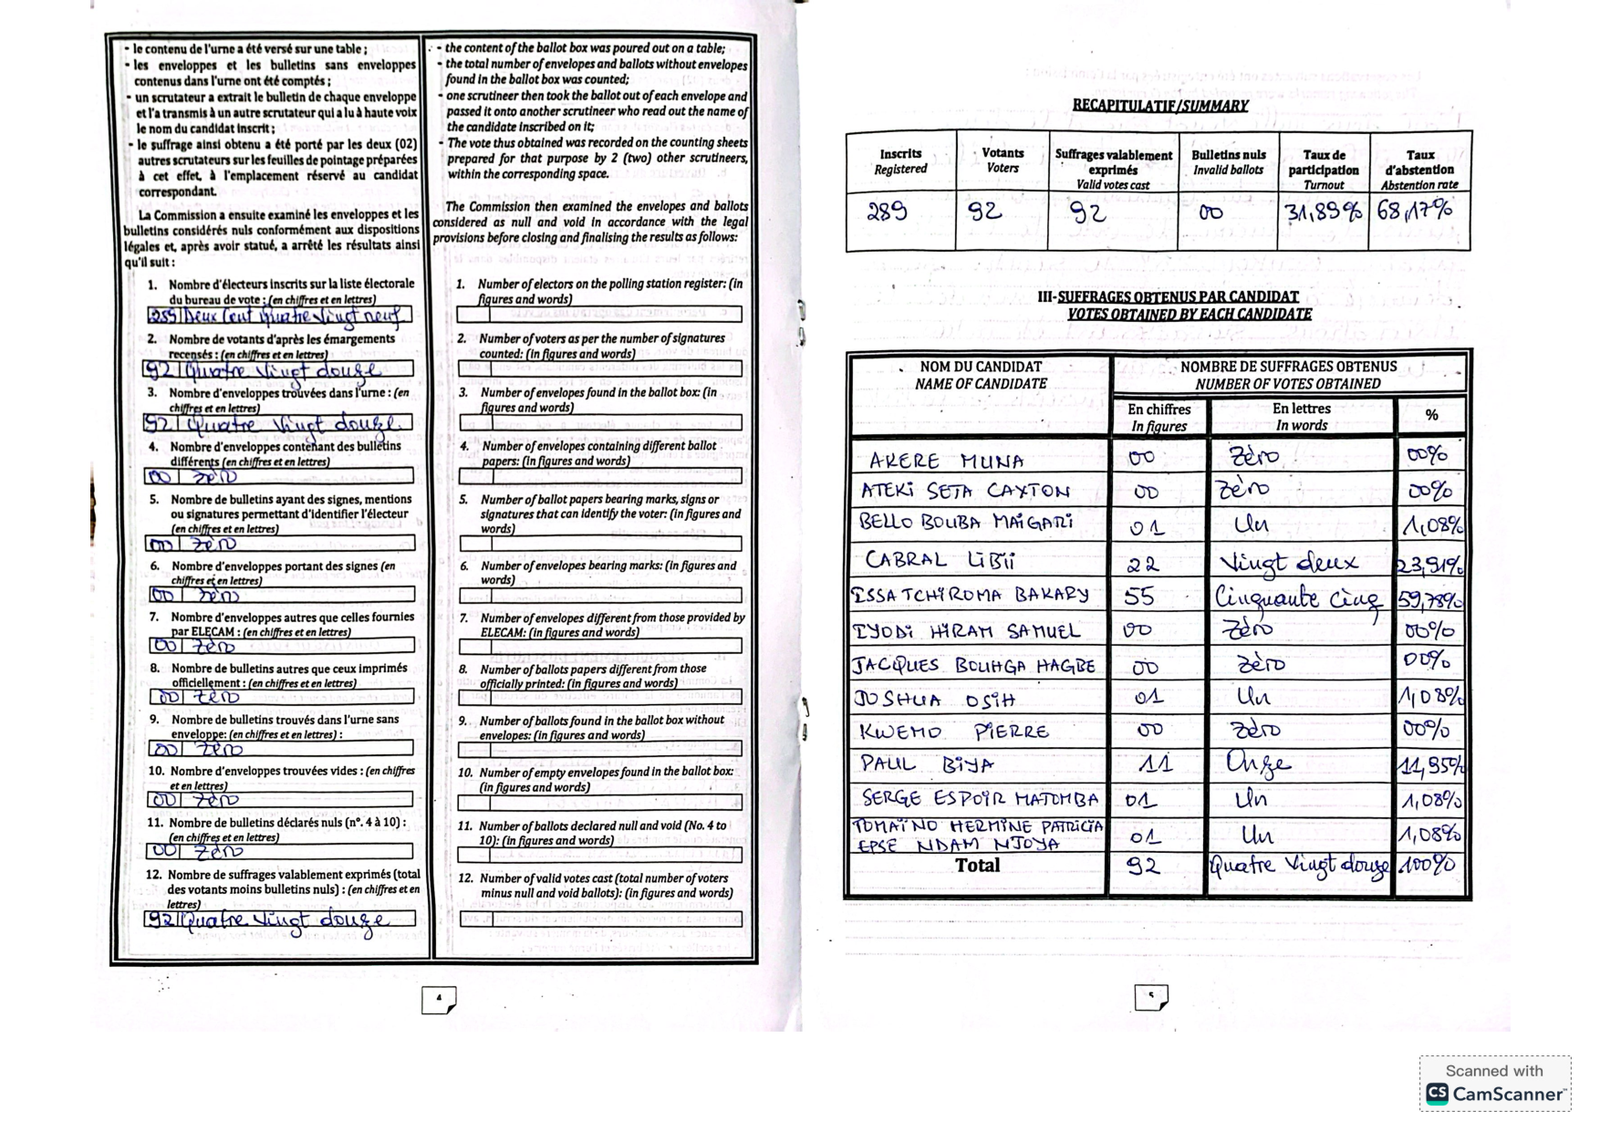 - le contenu de l'urne a été versé sur une table ;
- les enveloppes et les bulletins sans enveloppes
contenus dans l'urne ont été comptés ;
- un scrutateur a extrait le bulletin de chaque enveloppe
et l'a transmis à un autre scrutateur qui a lu à haute voix
le nom du candidat inscrit ;
- le suffrage ainsi obtenu a été porté par les deux (02)
autres scrutateurs sur les feuilles de pointage préparées
à cet effet, à l'emplacement réservé au candidat
correspondant.
La Commission a ensuite examiné les enveloppes et les
bulletins considérés nuls conformément aux dispositions
légales et, après avoir statué, a arrêté les résultats ainsi
qu'il suit :
1. Nombre d'électeurs inscrits sur la liste électorale
du bureau de vote : (en chiffres et en lettres)
289 Deux Cent Quatre Vingt neuf
2. Nombre de votants d'après les émargements
recensés : (en chiffres et en lettres)
92 Quatre Vingt douze
3. Nombre d'enveloppes trouvées dans l'urne : (en
chiffres et en lettres)
92 Quatre Vingt douze
4. Nombre d'enveloppes contenant des bulletins
différents (en chiffres et en lettres)
00 Zéro
5. Nombre de bulletins ayant des signes, mentions
ou signatures permettant d'identifier l'électeur
(en chiffres et en lettres)
00 Zéro
6. Nombre d'enveloppes portant des signes (en
chiffres et en lettres)
00 Zéro
7. Nombre d'enveloppes autres que celles fournies
par ELECAM : (en chiffres et en lettres)
00 Zéro
8. Nombre de bulletins autres que ceux imprimés
officiellement : (en chiffres et en lettres)
00 Zéro
9. Nombre de bulletins trouvés dans l'urne sans
enveloppe: (en chiffres et en lettres) :
00 Zéro
10. Nombre d'enveloppes trouvées vides : (en chiffres
et en lettres)
00 Zéro
11. Nombre de bulletins déclarés nuls (n°. 4 à 10) :
(en chiffres et en lettres)
00 Zéro
12. Nombre de suffrages valablement exprimés (total
des votants moins bulletins nuls) : (en chiffres et en
lettres)
92 Quatre Vingt douze
- the content of the ballot box was poured out on a table;
- the total number of envelopes and ballots without envelopes
found in the ballot box was counted;
- one scrutineer then took the ballot out of each envelope and
passed it onto another scrutineer who read out the name of
the candidate inscribed on it;
- The vote thus obtained was recorded on the counting sheets
prepared for that purpose by 2 (two) other scrutineers,
within the corresponding space.
The Commission then examined the envelopes and ballots
considered as null and void in accordance with the legal
provisions before closing and finalising the results as follows:
1. Number of electors on the polling station register: (in
figures and words)
2. Number of voters as per the number of signatures
counted: (In figures and words)
3. Number of envelopes found in the ballot box: (in
figures and words)
4. Number of envelopes containing different ballot
papers: (in figures and words)
5. Number of ballot papers bearing marks, signs or
signatures that can identify the voter: (in figures and
words)
6. Number of envelopes bearing marks: (in figures and
words)
7. Number of envelopes different from those provided by
ELECAM: (in figures and words)
8. Number of ballots papers different from those
officially printed: (in figures and words)
9. Number of ballots found in the ballot box without
envelopes: (in figures and words)
10. Number of empty envelopes found in the ballot box:
(in figures and words)
11. Number of ballots declared null and void (No. 4 to
10): (in figures and words)
12. Number of valid votes cast (total number of voters
minus null and void ballots): (in figures and words)
4
RECAPITULATIF/SUMMARY
Inscrits Votants Suffrages valablement Bulletins nuls Taux de Taux
Registered Voters exprimés Invalid ballots participation d'abstention
Valid votes cast Turnout Abstention rate
289 92 92 00 31,83% 68,17%
III-SUFFRAGES OBTENUS PAR CANDIDAT
VOTES OBTAINED BY EACH CANDIDATE
NOM DU CANDIDAT NOMBRE DE SUFFRAGES OBTENUS
NAME OF CANDIDATE NUMBER OF VOTES OBTAINED
En chiffres En lettres %
In figures In words
AKERE MUNA 00 Zéro 00%
ATEKI SETA CAXTON 00 Zéro 00%
BELLO BOUBA MAIGARI 01 Un 1,08%
CABRAL LIBII 22 Vingt deux 23,91%
ISSA TCHIROMA BAKARY 55 Cinquante cinq 59,78%
IYODI HIRAM SAMUEL 00 Zéro 00%
JACQUES BOUHGA HAGBE 00 Zéro 00%
JOSHUA OSIH 01 Un 1,08%
KWEMO PIERRE 00 Zéro 00%
PAUL BIYA 11 Onze 11,95%
SERGE ESPOIR MATOMBA 01 Un 1,08%
TOMAÏNO HERMINE PATRICIA
EPSE NDAM NJOYA 01 Un 1,08%
Total 92 Quatre Vingt douze 100%
5
Scanned with
CS CamScanner